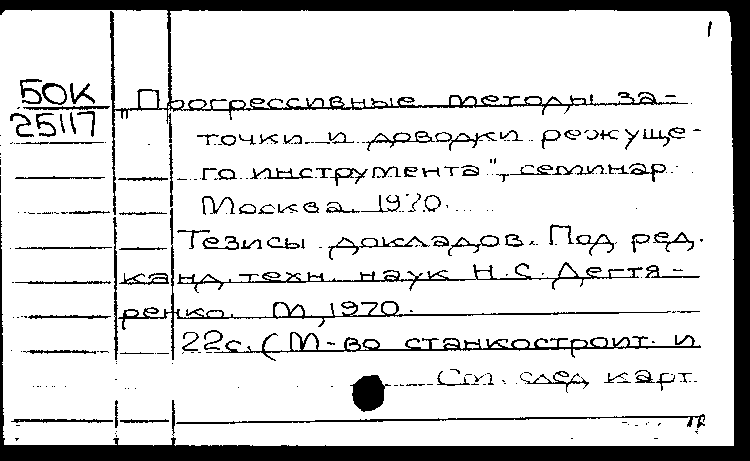 1
50К
25117
"Прогрессивные методы за-
точки и доводки режуще-
го инструмента", семинар.
Москва. 1970.
Тезисы докладов. Под ред.
канд. техн. наук Н.С. Дегтя-
ренко. М., 1970.
22с. (М-во станкостроит. и
См. след карт.